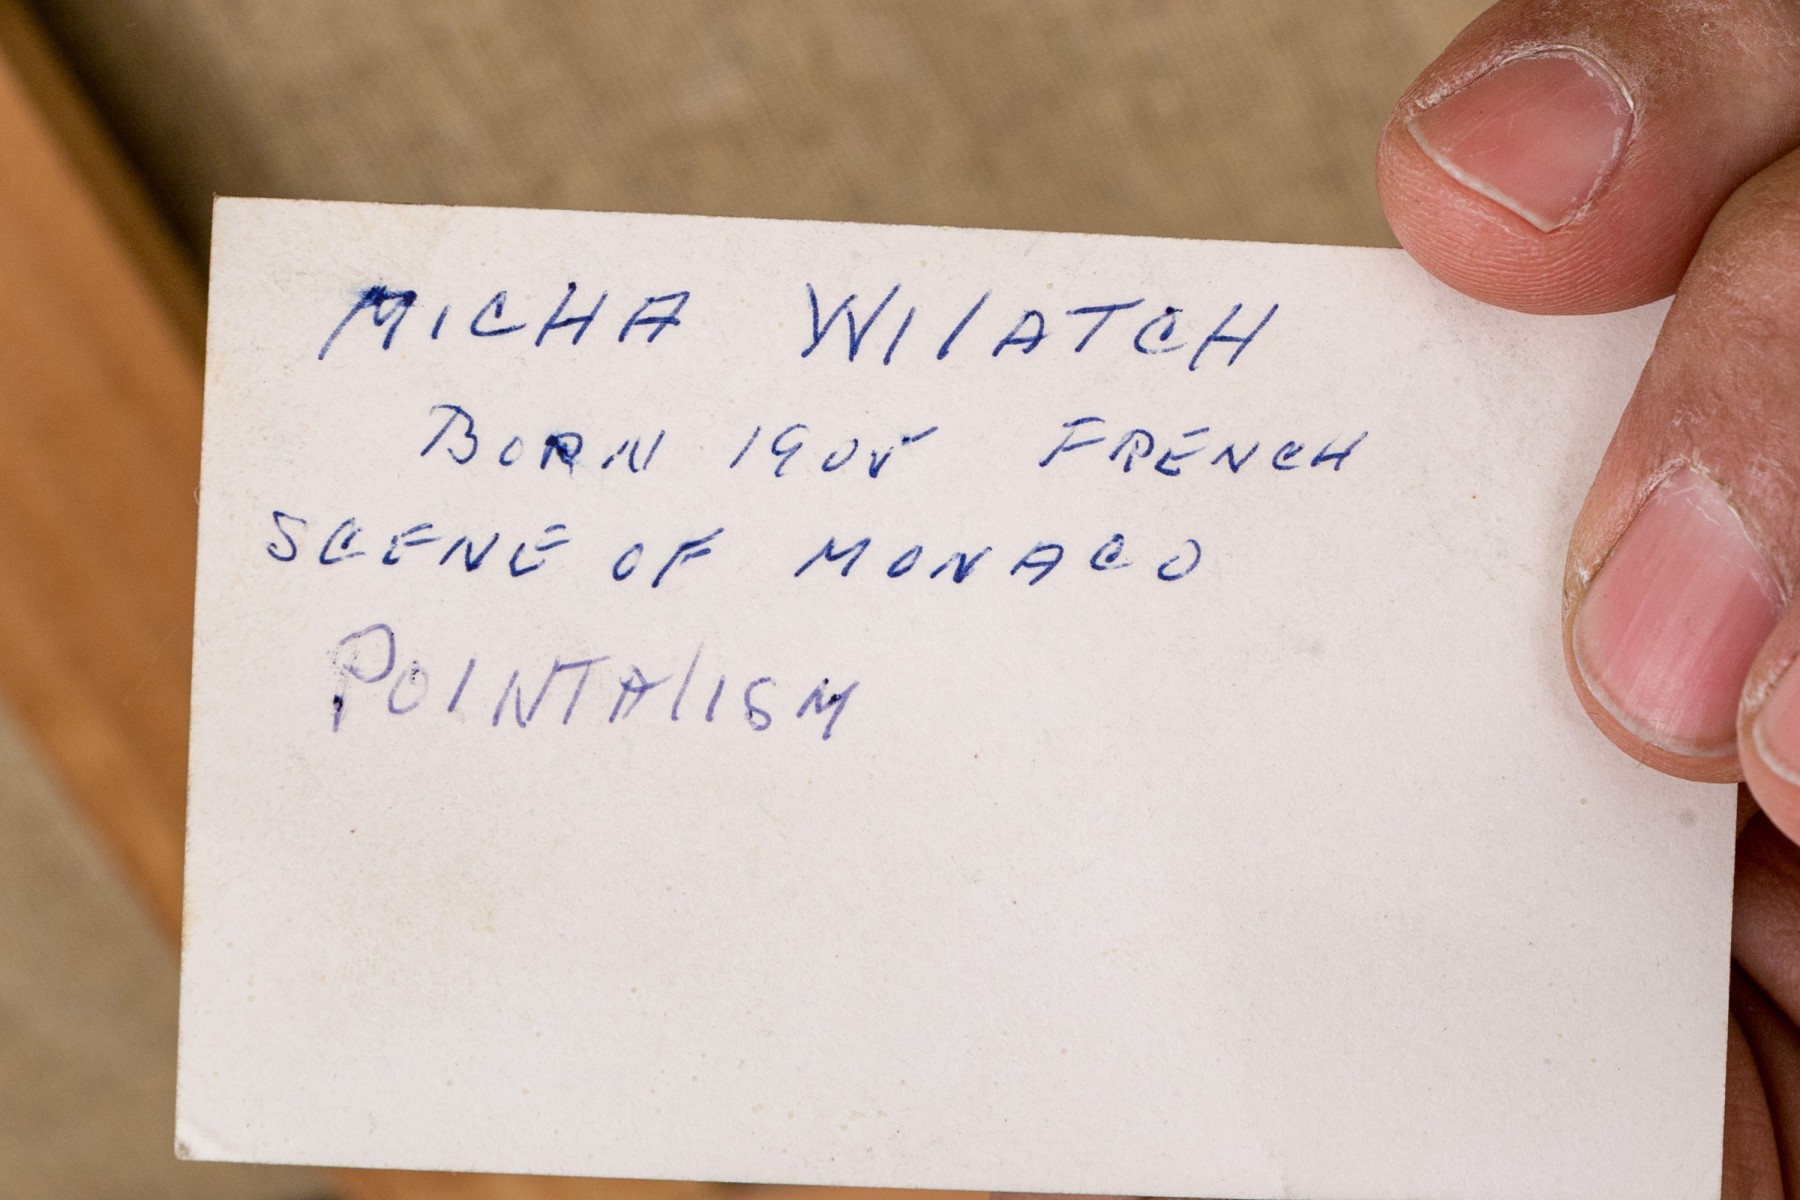 MICHA WIlATCH
BORN 1905 FRENCH
SCENE OF MONACO
POINTAlISM